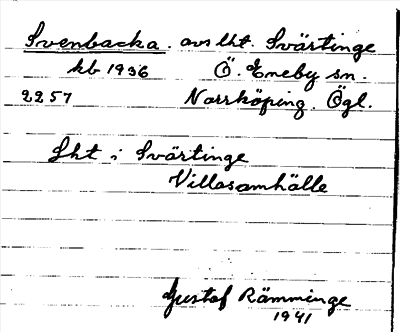 Svenbacka. avs lht. Svärtinge
kb 1936 Ö. Eneby sn.
2257 Norrköping. Ögl.
Lht i Svärtinge
Villasamhälle
Gustaf Rämminge
1941